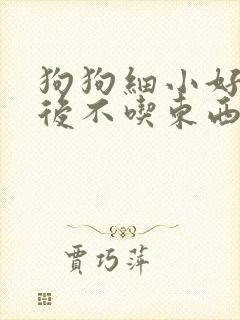 狗狗細小好
後不喫東西
賈巧萍